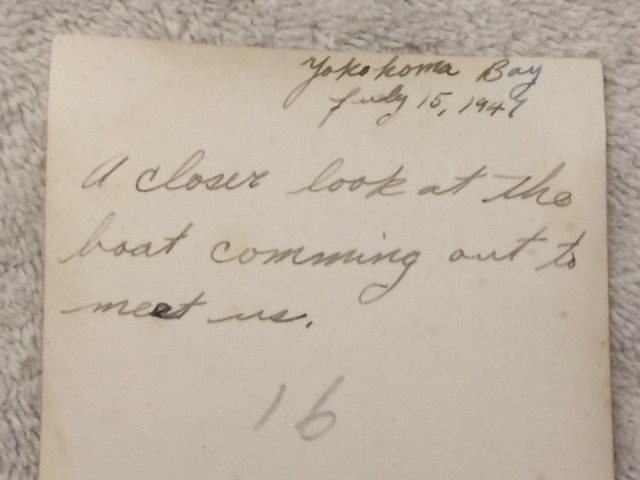 Yokohoma Bay
July 15, 1947
A closer look at the
boat comming out to
meet us.
16